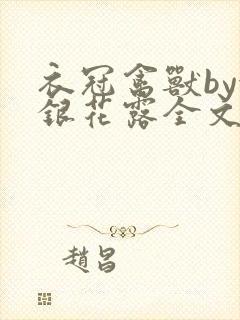 衣冠禽獸by
銀花露全文
趙昌